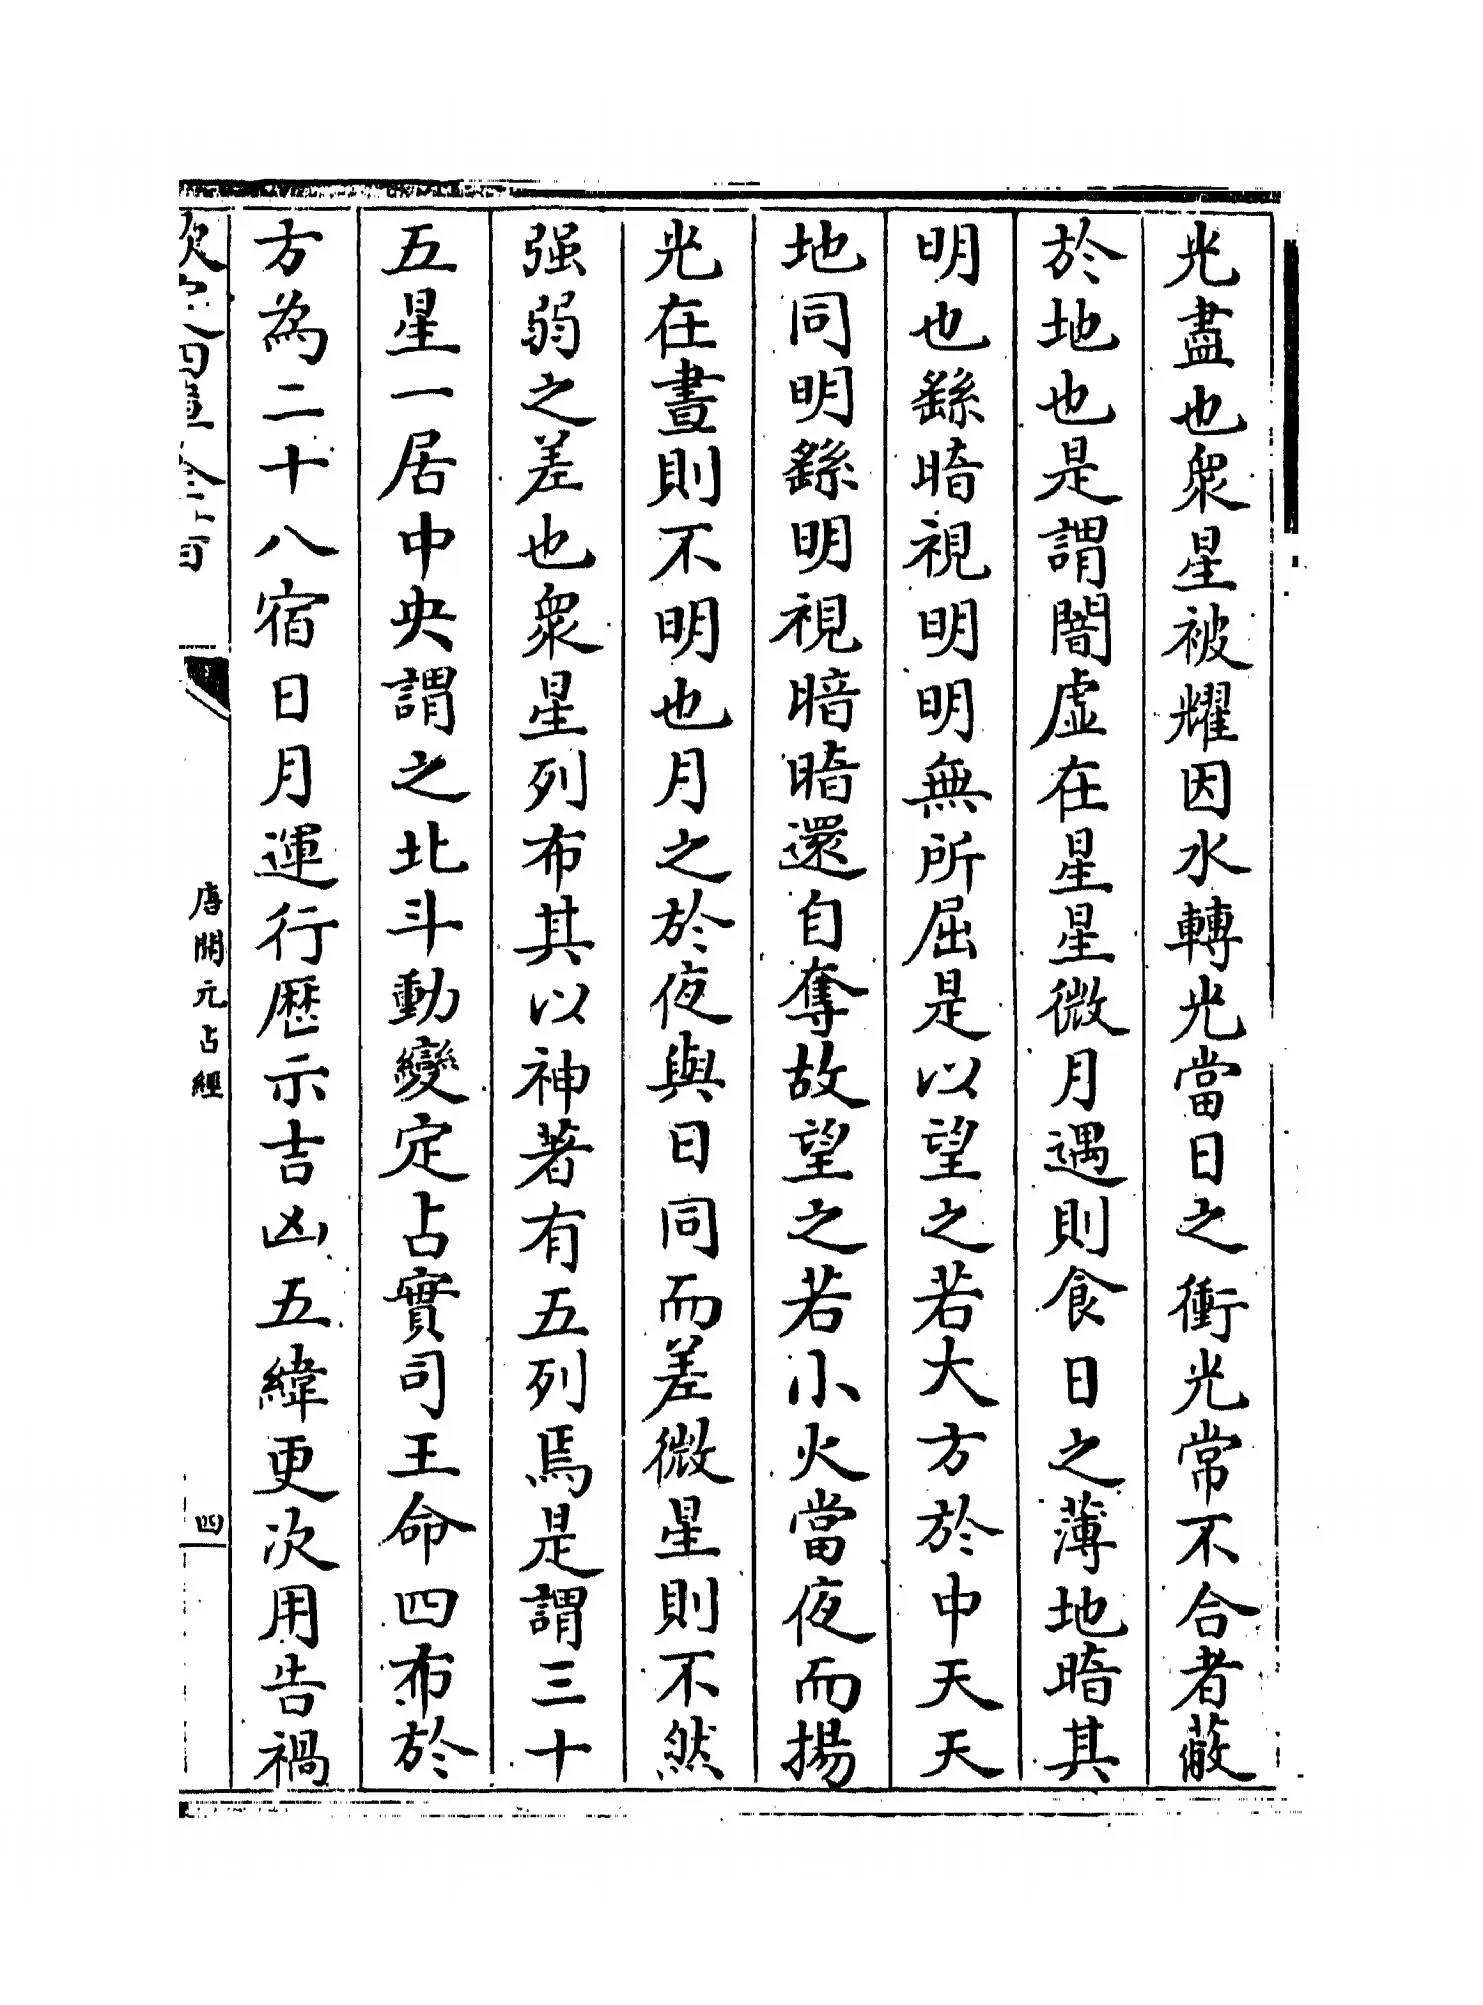 光盡也衆星被耀因水轉光當日之衝光常不合者蔽
於地也是謂闇虛在星星微月遇則食日之薄地暗其
明也繇暗視明明無所屈是以望之若大方於中天天
地同明繇明視暗暗還自奪故望之若小火當夜而揚
光在晝則不明也月之於夜與日同而差微星則不然
强弱之差也衆星列布其以神著有五列焉是謂三十
五星一居中央謂之北斗動變定占實司王命四布於
方為二十八宿日月運行歷示吉凶五緯更次用告禍
欽定四庫全書
唐開元占經
四